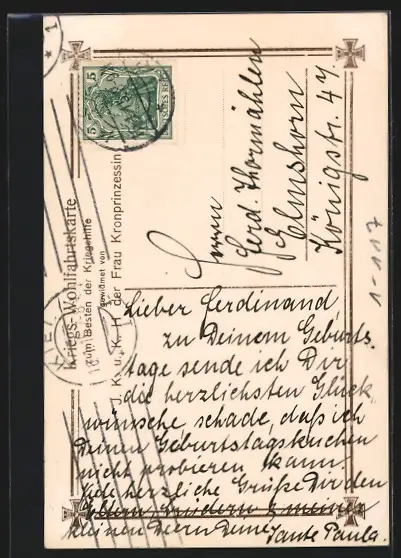 Kriegs-Wohlfahrtskarte
zum Besten der Kriegshilfe
gewidmet von
J. K. u. K. H. der Frau Kronprinzessin
5
5
DEUTSCHES REICH
Herrn
Ferd. Thormählen
Elmshorn
Königstr. 47
1-117
Lieber Ferdinand,
zu Deinem Geburts-
tage sende ich Dir
die herzlichsten Glück
wünsche, schade, daß ich
Deinen Geburtstagskuchen
nicht probieren kann.
Viele herzliche Grüße Dir den
Eltern, Brüdern & meiner
kleinen Deern Deine Tante Paula.